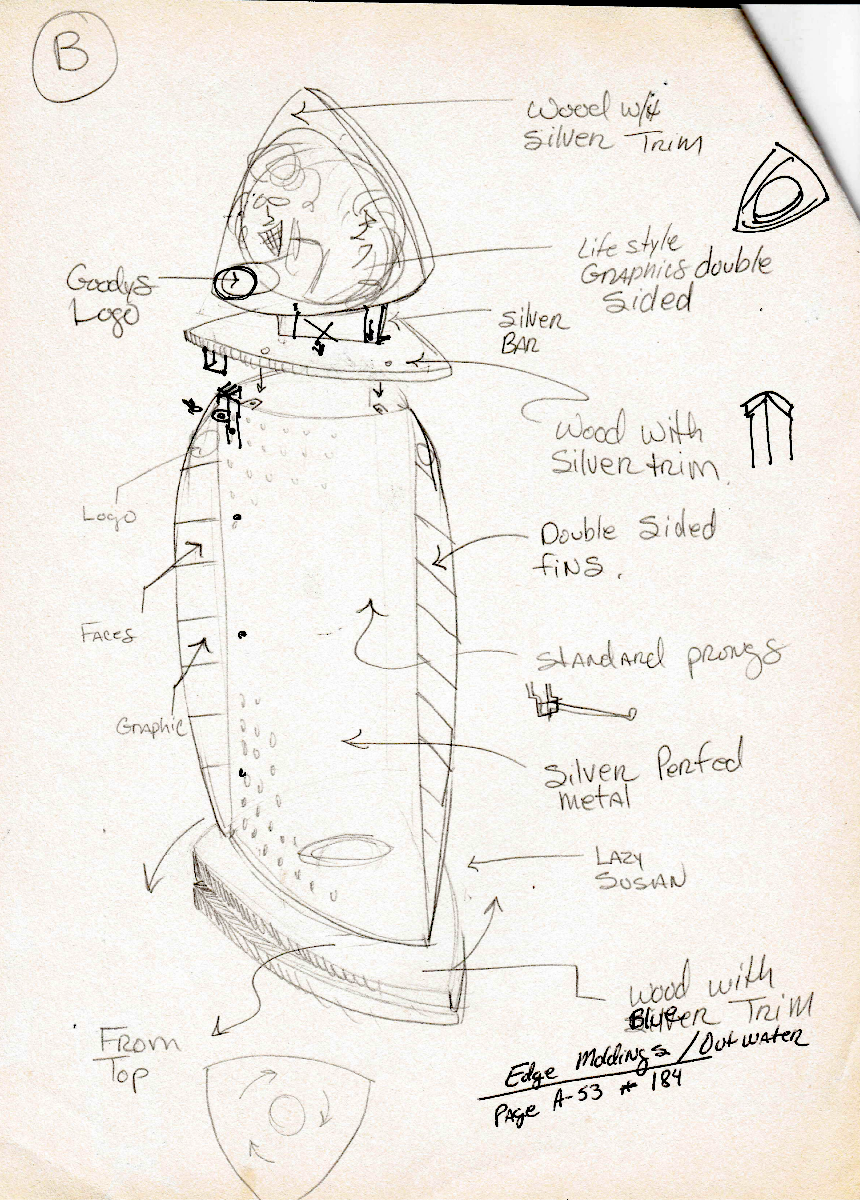 B
Wood w/
Silver Trim
Life style
Graphics double
Sided
Goodys
Logo
Silver
BAR
Wood with
Silver trim.
Logo
Double Sided
fins.
Faces
STANDARD prongs
Graphic
Silver Perfed
metal
LAZY
SUSAN
Wood with
Blue Trim
From
Top
Edge Moldings / Outwater
PAge A-53 # 184